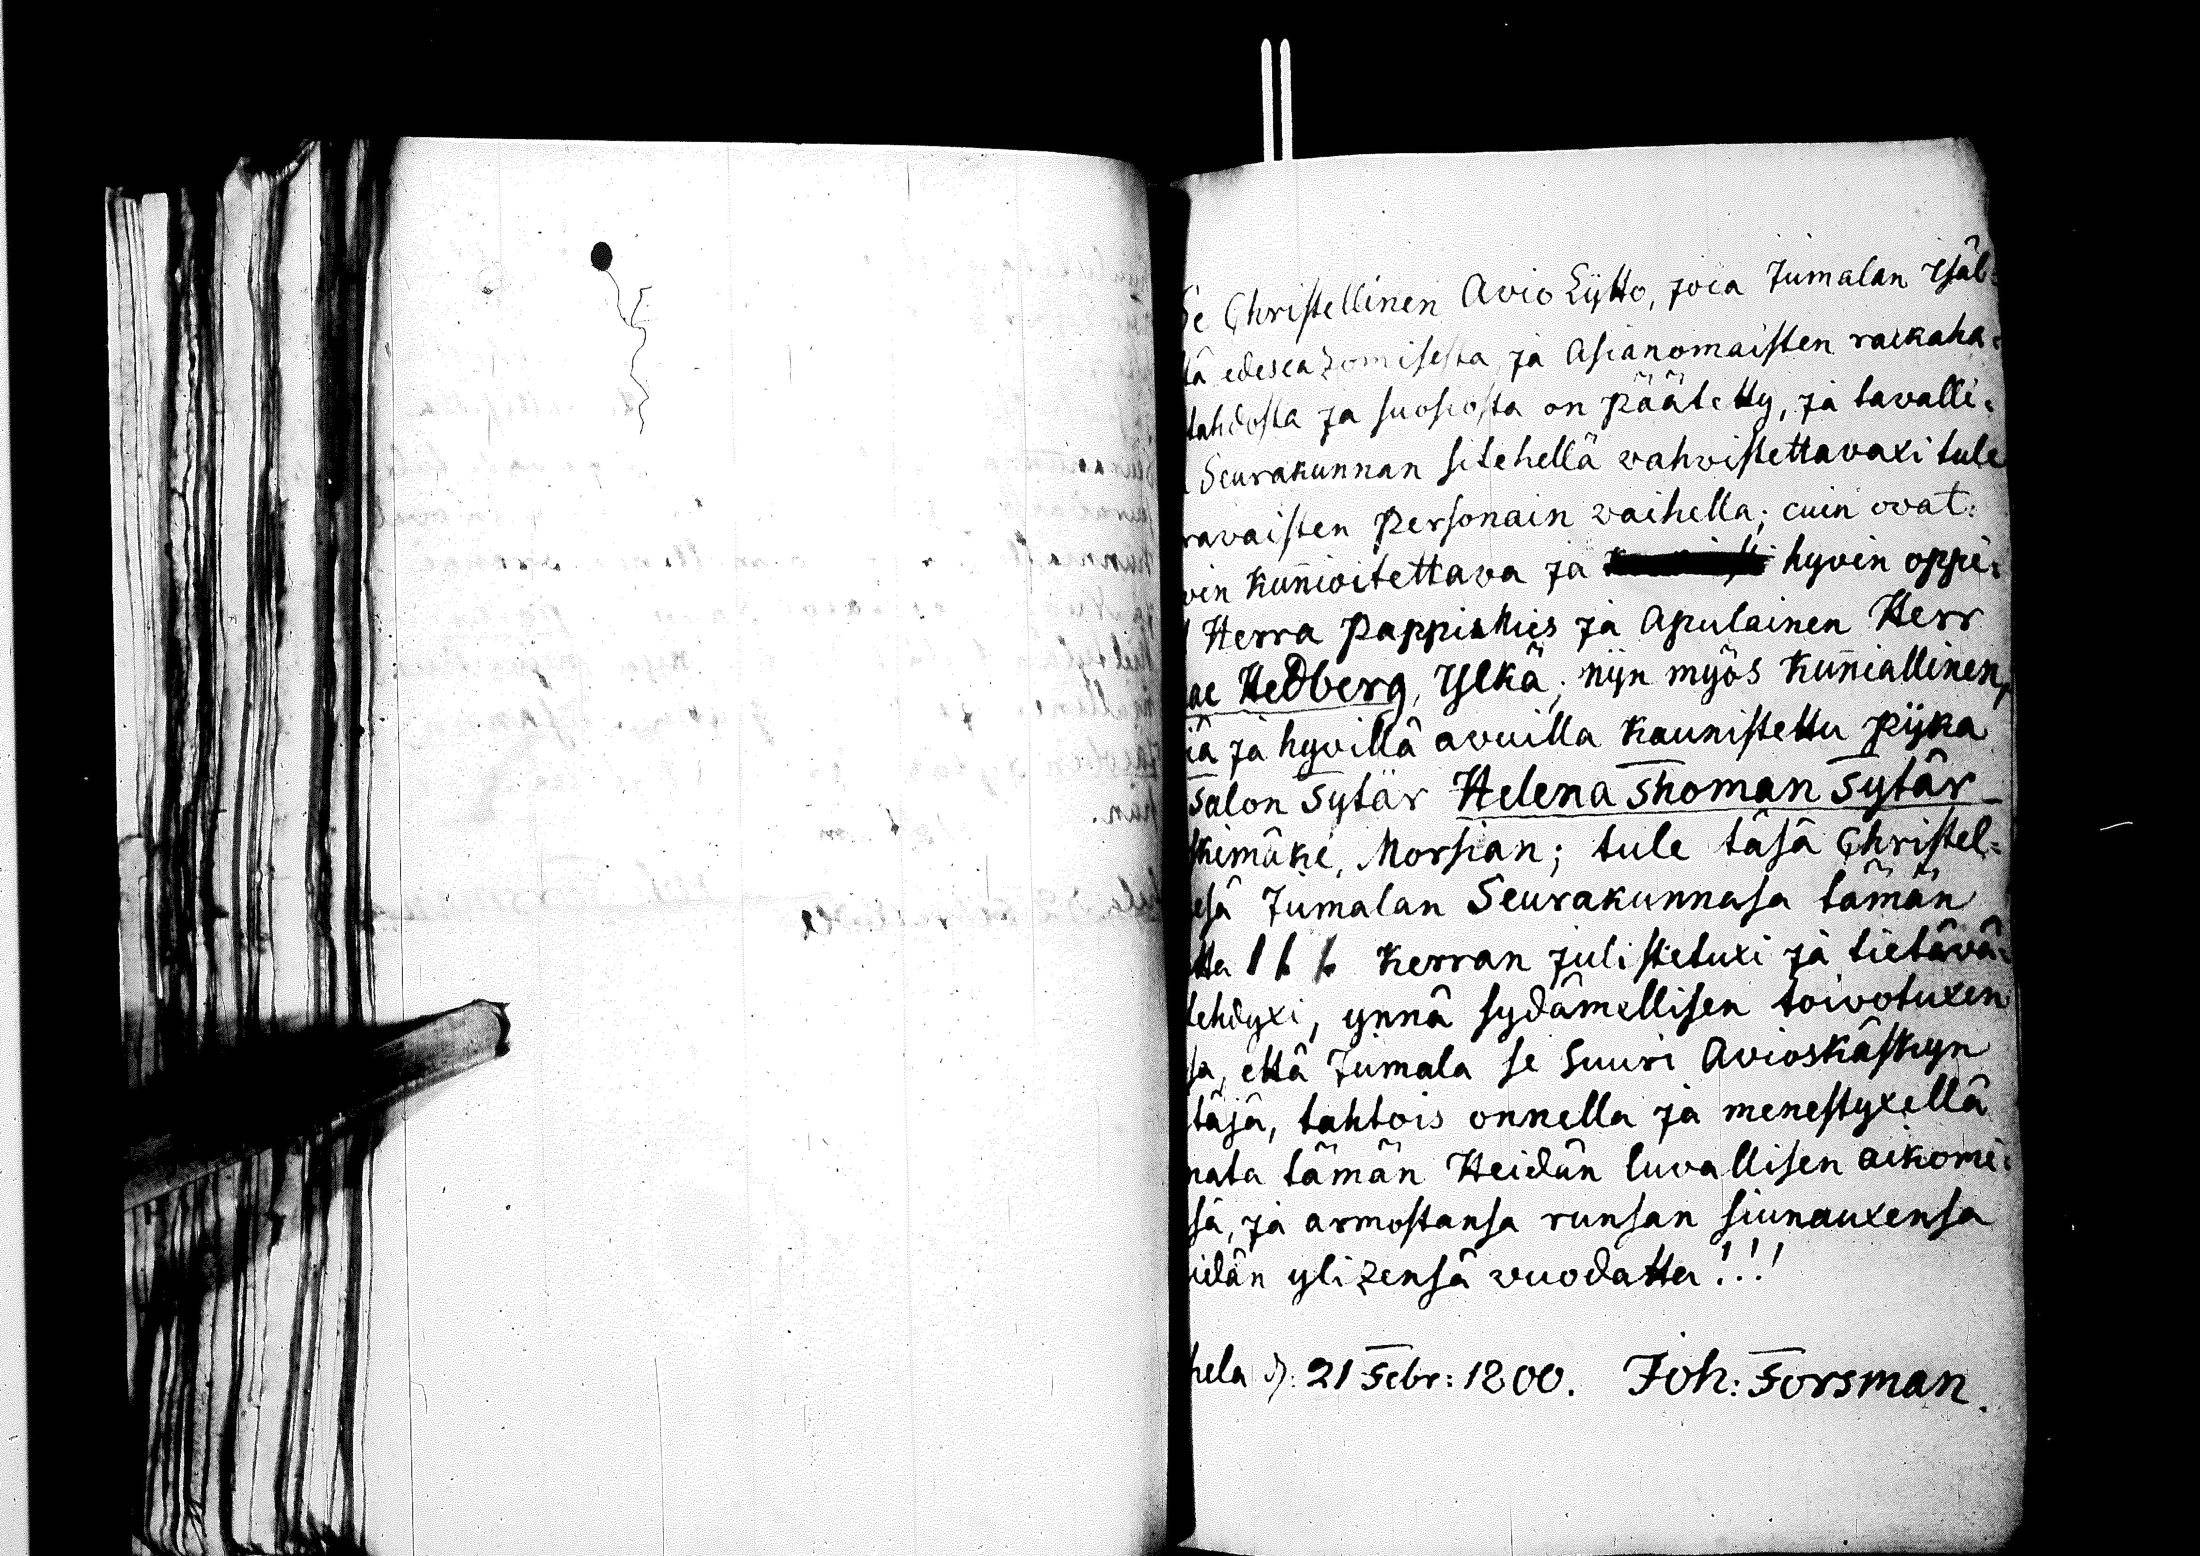 Se Christellinen Avio Lijtto, joca Jumalan Isäl-
tä edescazomisesta, ja Asianomaisten rackaha-
tahdosta ja suosiosta on päätetty, ja tavalli-
Seurakunnan sitehellä vahvistettavaxi tule
ravaisten Personain vaihella; cuin ovat:
vin kunnioitettava ja hyvin oppi-
Herra Pappis Mies ja Apulainen Herr
Hedberg, Ylkä; nijn myös kunniallinen,
iä ja hyvillä avuilla kaunistettu Pijka
Salon Sytär Helena Thoman Sytär
kimäki, Morsian; tule täsä Christel-
esä Jumalan Seurakunnasa tämän
tta 1 1 1 kerran julistetuxi ja tietävä-
tehdyxi, ynnä sydämellisen toivotuxen
sa, että Jumala se Suuri Avioskäskyn
täjä, tahtois onnella ja menestyxellä
nata tämän Heidän luvallisen aikomi-
sä, ja armostansa runsan siunauxensa
idän ylizensä vuodatta!!!
hela d. 21 Febr: 1800. Joh: Forsman.